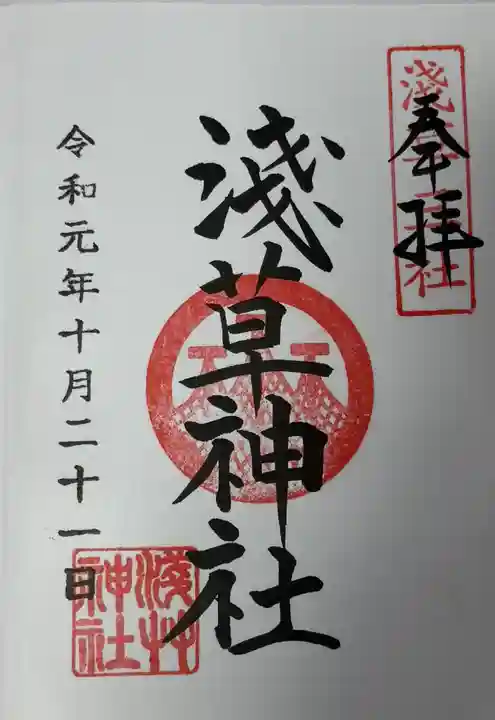 奉拝
淺草神社
淺草神社
令和元年十月二十一日
淺草神社